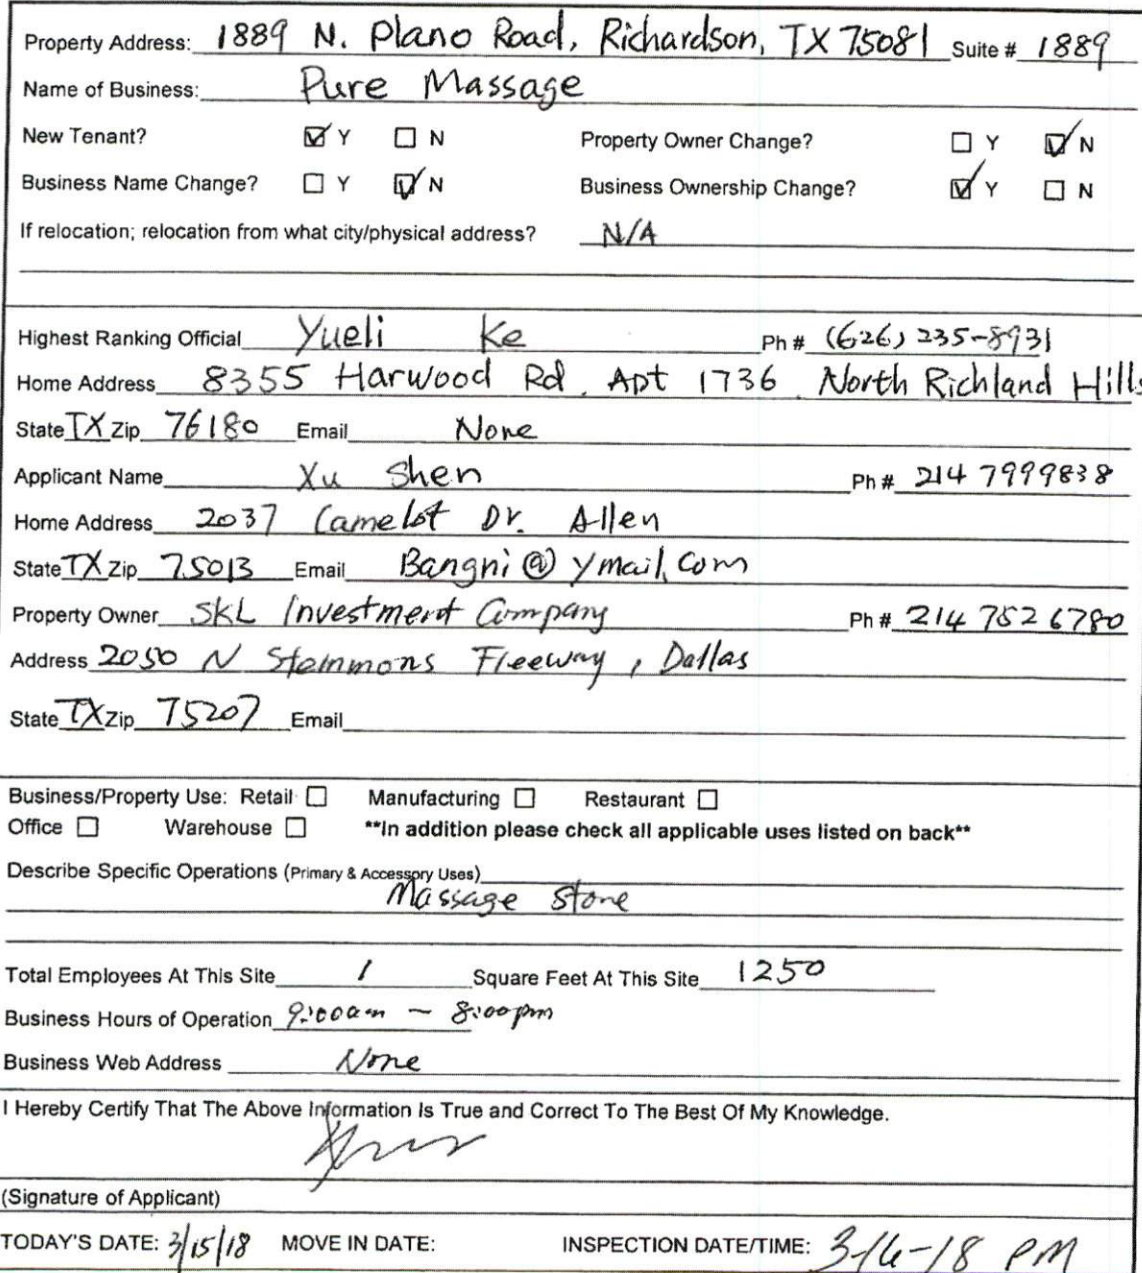 Property Address: 1889 N. Plano Road, Richardson, TX 75081 Suite # 1889
Name of Business: Pure Massage
New Tenant? ☑ Y ☐ N Property Owner Change? ☐ Y ☑ N
Business Name Change? ☐ Y ☑ N Business Ownership Change? ☑ Y ☐ N
If relocation; relocation from what city/physical address? N/A
Highest Ranking Official Yueli Ke Ph # (626) 235-8931
Home Address 8355 Harwood Rd. Apt 1736 North Richland Hills
State TX Zip 76180 Email None
Applicant Name Xu Shen Ph # 214 7999838
Home Address 2037 Camelot Dr. Allen
State TX Zip 75013 Email Bangni@ymail.com
Property Owner SKL Investment Company Ph # 214 752 6780
Address 2050 N Stemmons Freeway, Dallas
State TX Zip 75207 Email
Business/Property Use: Retail ☐ Manufacturing ☐ Restaurant ☐
Office ☐ Warehouse ☐ **In addition please check all applicable uses listed on back**
Describe Specific Operations (Primary & Accessory Uses)
Massage Store
Total Employees At This Site 1 Square Feet At This Site 1250
Business Hours of Operation 9:00am ~ 8:00pm
Business Web Address None
I Hereby Certify That The Above Information Is True and Correct To The Best Of My Knowledge.
(Signature of Applicant)
TODAY'S DATE: 3/15/18 MOVE IN DATE: INSPECTION DATE/TIME: 3-16-18 PM